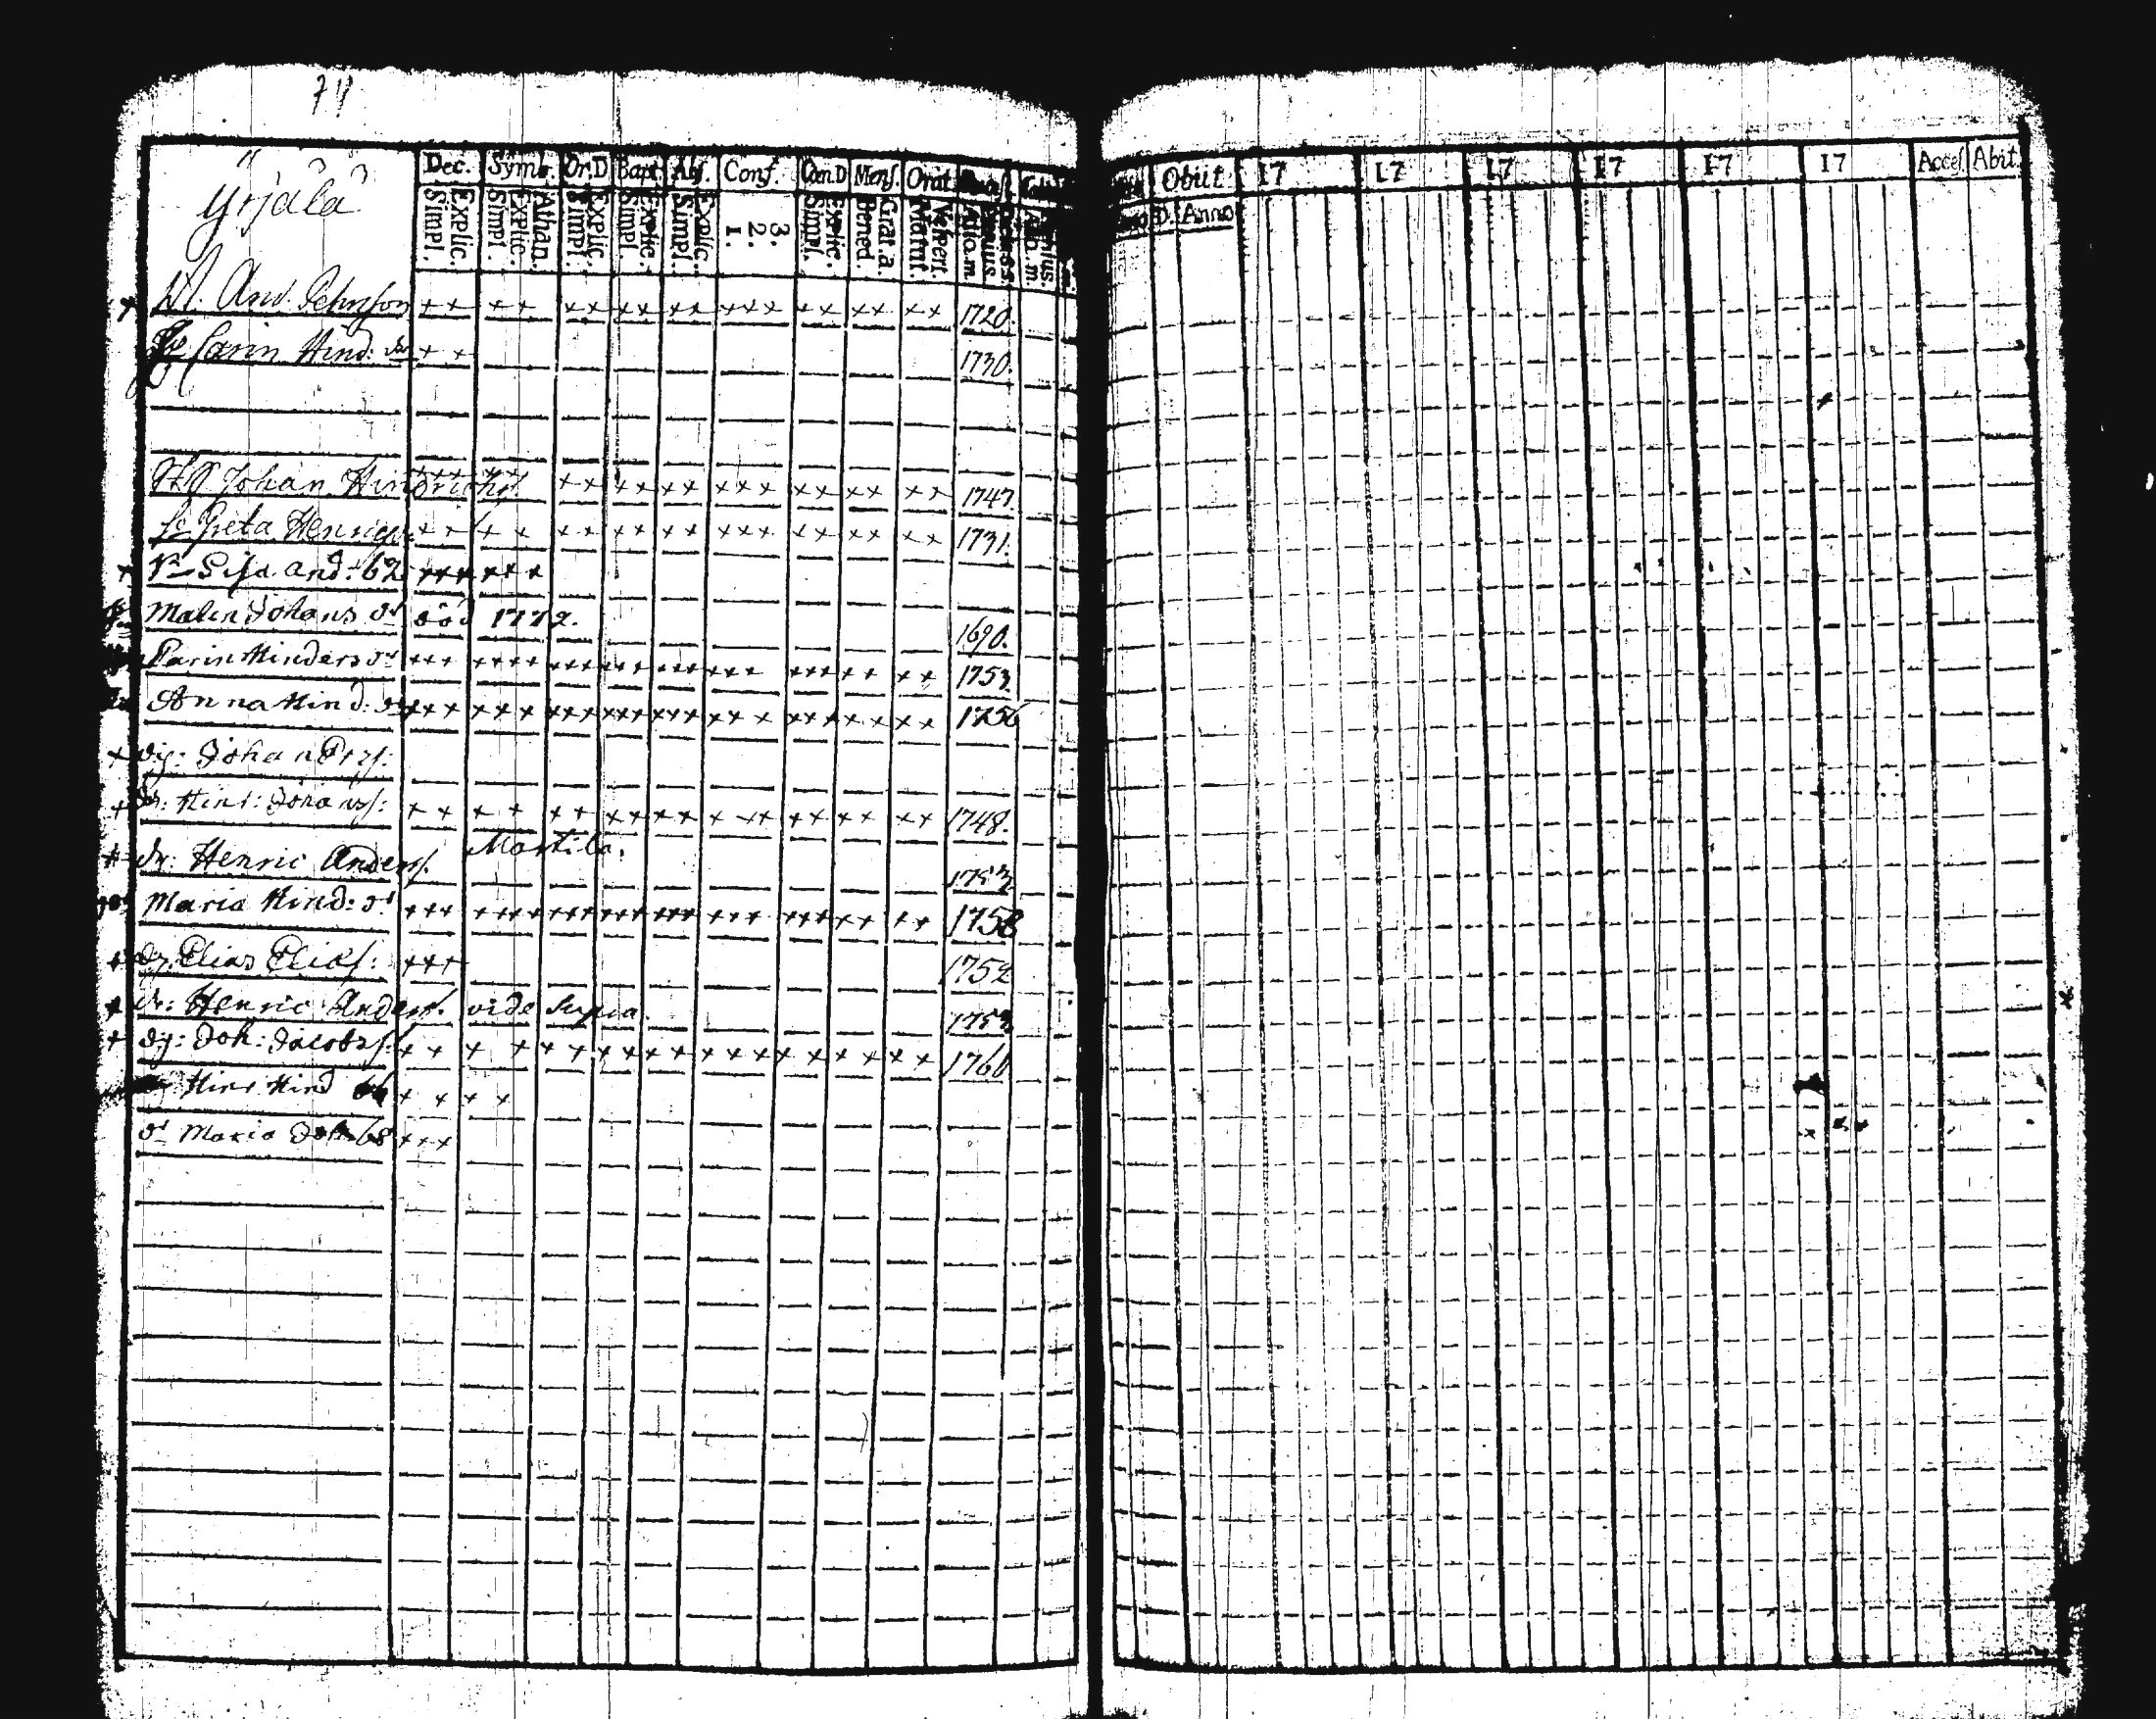 Yrjälä
Dec. Symb. Or.D Bapt. Abs. Conf. Cœn.D Mens. Orat.
Simpl. Explic. Simpl. Explic. Athan. Simpl. Explic. Simpl. Explic. Simpl. Explic. 1. 2. 3. Simpl. Explic. Bened. Grat.a. Matut. Vespert.
Obiit 17 17 17 17 17 17 Acces Abit.
D. Anno
And. Johansson ++ ++ ++ ++ ++ +++ ++ ++ ++ 1720.
Carin Hind: dr ++ 1730.
Johan Hindrichs. ++ ++ ++ +++ ++ ++ ++ 1747.
Greta Henrics ++ ++ ++ ++ ++ +++ ++ ++ ++ 1731.
+ Lisa And: 62 +++ +++
Malin Johans dr död 1772. 1690.
Carin Hinders dr +++ ++++ +++ +++ +++ +++ +++ ++ ++ 1753.
Anna Hind: dr +++ +++ +++ +++ +++ +++ +++ ++ ++ 1756
+ dg: Johan
+ dr: Hind: Johanss: ++ ++ ++ ++ ++ +++ ++ ++ ++ 1748.
dr: Henric Anders. Marttila.
Maria Hind: dr +++ ++++ +++ +++ +++ +++ +++ ++ ++ 1758
+ dg. Elias Elias: +++ 1752
+ dr: Henric Anders. vide supra.
+ dg: Joh: Jacobs: ++ ++ ++ ++ ++ +++ ++ ++ ++ 1760
Hind Hind ++ ++
dr Maria Joh 68 +++